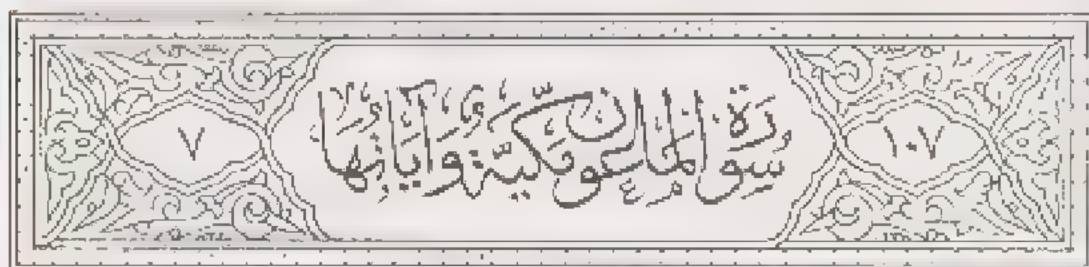 ١٠٧
سُورَةُ الْمَاعُونِ مَكِّيَّةٌ وَآيَاتُهَا
٧